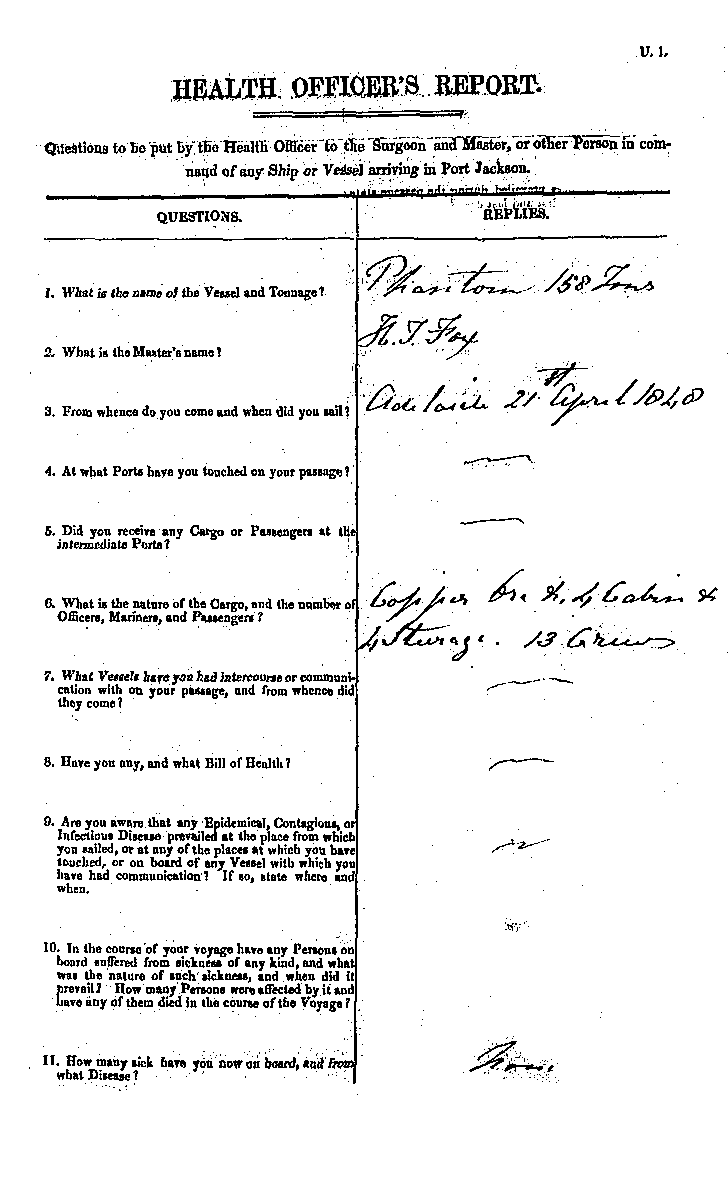 U. 1.
HEALTH OFFICER'S REPORT.
Questions to be put by the Health Officer to the Surgeon and Master, or other Person in com-
mand of any Ship or Vessel arriving in Port Jackson.
QUESTIONS.
REPLIES.
1. What is the name of the Vessel and Tonnage?
Phantom 158 Tons
2. What is the Master's name?
H. T. Fox
3. From whence do you come and when did you sail?
Adelaide 21st April 1848
4. At what Ports have you touched on your passage?
5. Did you receive any Cargo or Passengers at the
intermediate Ports?
6. What is the nature of the Cargo, and the number of
Officers, Mariners, and Passengers?
Copper Ore &. 4 Cabin &
4 Sturage. 13 Crew
7. What Vessels have you had intercourse or communi-
cation with on your passage, and from whence did
they come?
8. Have you any, and what Bill of Health?
9. Are you aware that any Epidemical, Contagious, or
Infectious Disease prevailed at the place from which
you sailed, or at any of the places at which you have
touched, or on board of any Vessel with which you
have had communication? If so, state where and
when.
10. In the course of your voyage have any Persons on
board suffered from sickness of any kind, and what
was the nature of such sickness, and when did it
prevail? How many Persons were affected by it and
have any of them died in the course of the Voyage?
11. How many sick have you now on board, and from
what Disease?
None